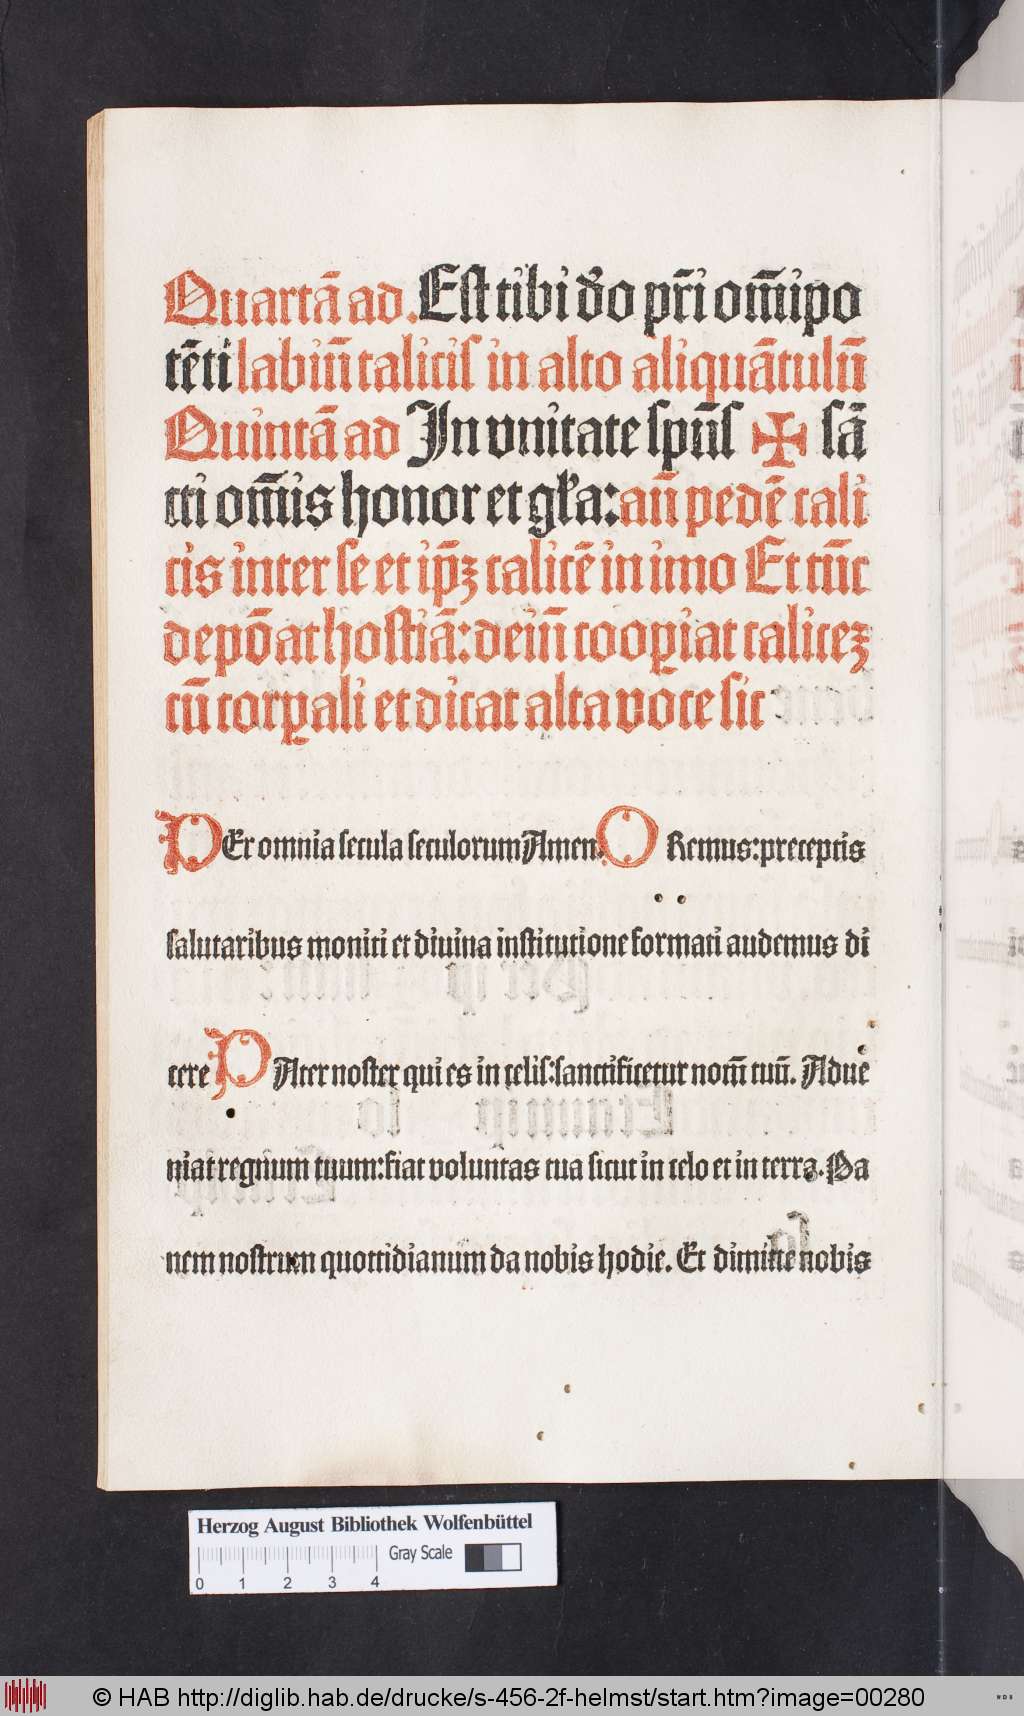 Quartā ad. Est tibi dēo pr̄i om̄ipo
tēti labiū calicis in alto aliquātulū
Quintā ad In vnitate spūs ✠ sā
cti om̄is honor et gl̄a: añ pedē cali
cis inter se et ip̄ꝫ calicē in imo Et tūc
depōat hostiā: deiñ coopiat caliceꝫ
cū corꝑali et dicat alta voce sic
PEr omnia secula seculorum Amen. ORemus: preceptis
salutaribus moniti et diuina institutione formati audemus di
cere PAter noster qui es in celis: sanctificetur nom̄ tuū. Adue
niat regnum tuum: fiat voluntas tua sicut in celo et in terra. Pa
nem nostrum quottidianum da nobis hodie. Et dimitte nobis
Herzog August Bibliothek Wolfenbüttel
Gray Scale
0 1 2 3 4
© HAB http://diglib.hab.de/drucke/s-456-2f-helmst/start.htm?image=00280